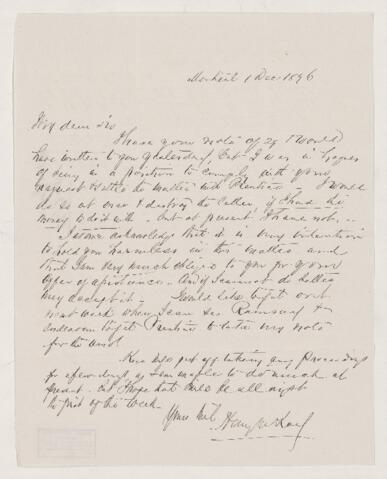 Montreal 1 Dec 1896
My dear Sir
I have your note of 29 I would
have written to you yesterday, but I was in hopes
of being in a position to comply with your
request & settle the matter with Prentice. I would
do so at once & destroy the letter, if I had the
money to do it with - but at present I have not.
I at once acknowledge that it is my intention
to hold you harmless in this matter and
that I am very much obliged to you for your
offer of assistance. And if I cannot do better
may accept it - Would like to get out
next week when I can see Ramsay &
endeavor to get Prentice to take my note
for the amt.
put off taking any Proceedings
for a few days as I am unable to do much at
present. but I hope that will be all right
the first of the week.
Yours truly Henry